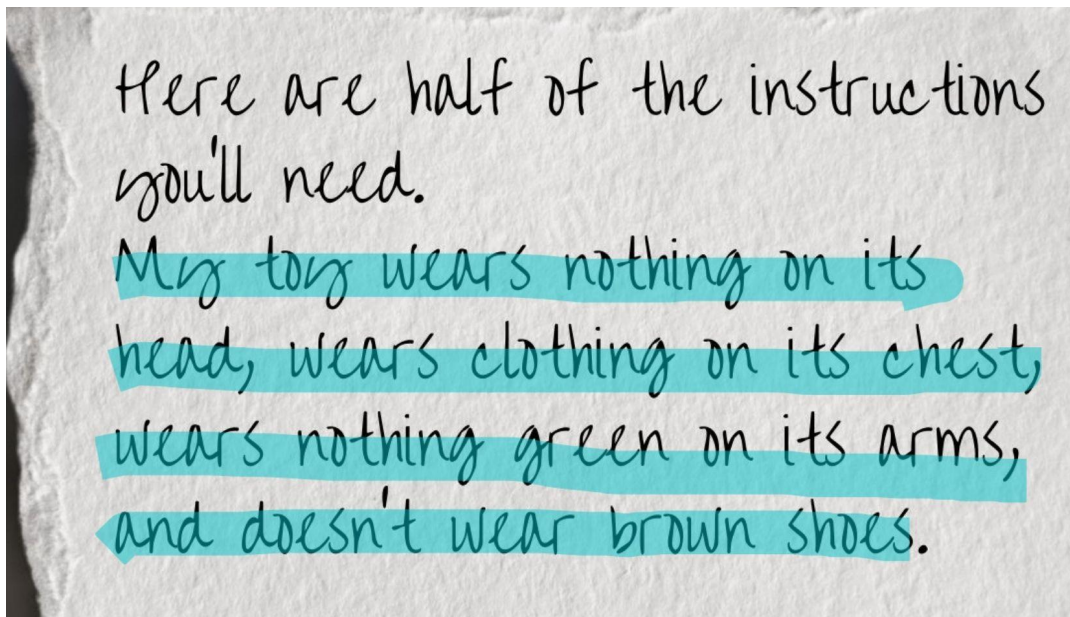 Here are half of the instructions
you'll need.
My toy wears nothing on its
head, wears clothing on its chest,
wears nothing green on its arms,
and doesn't wear brown shoes.